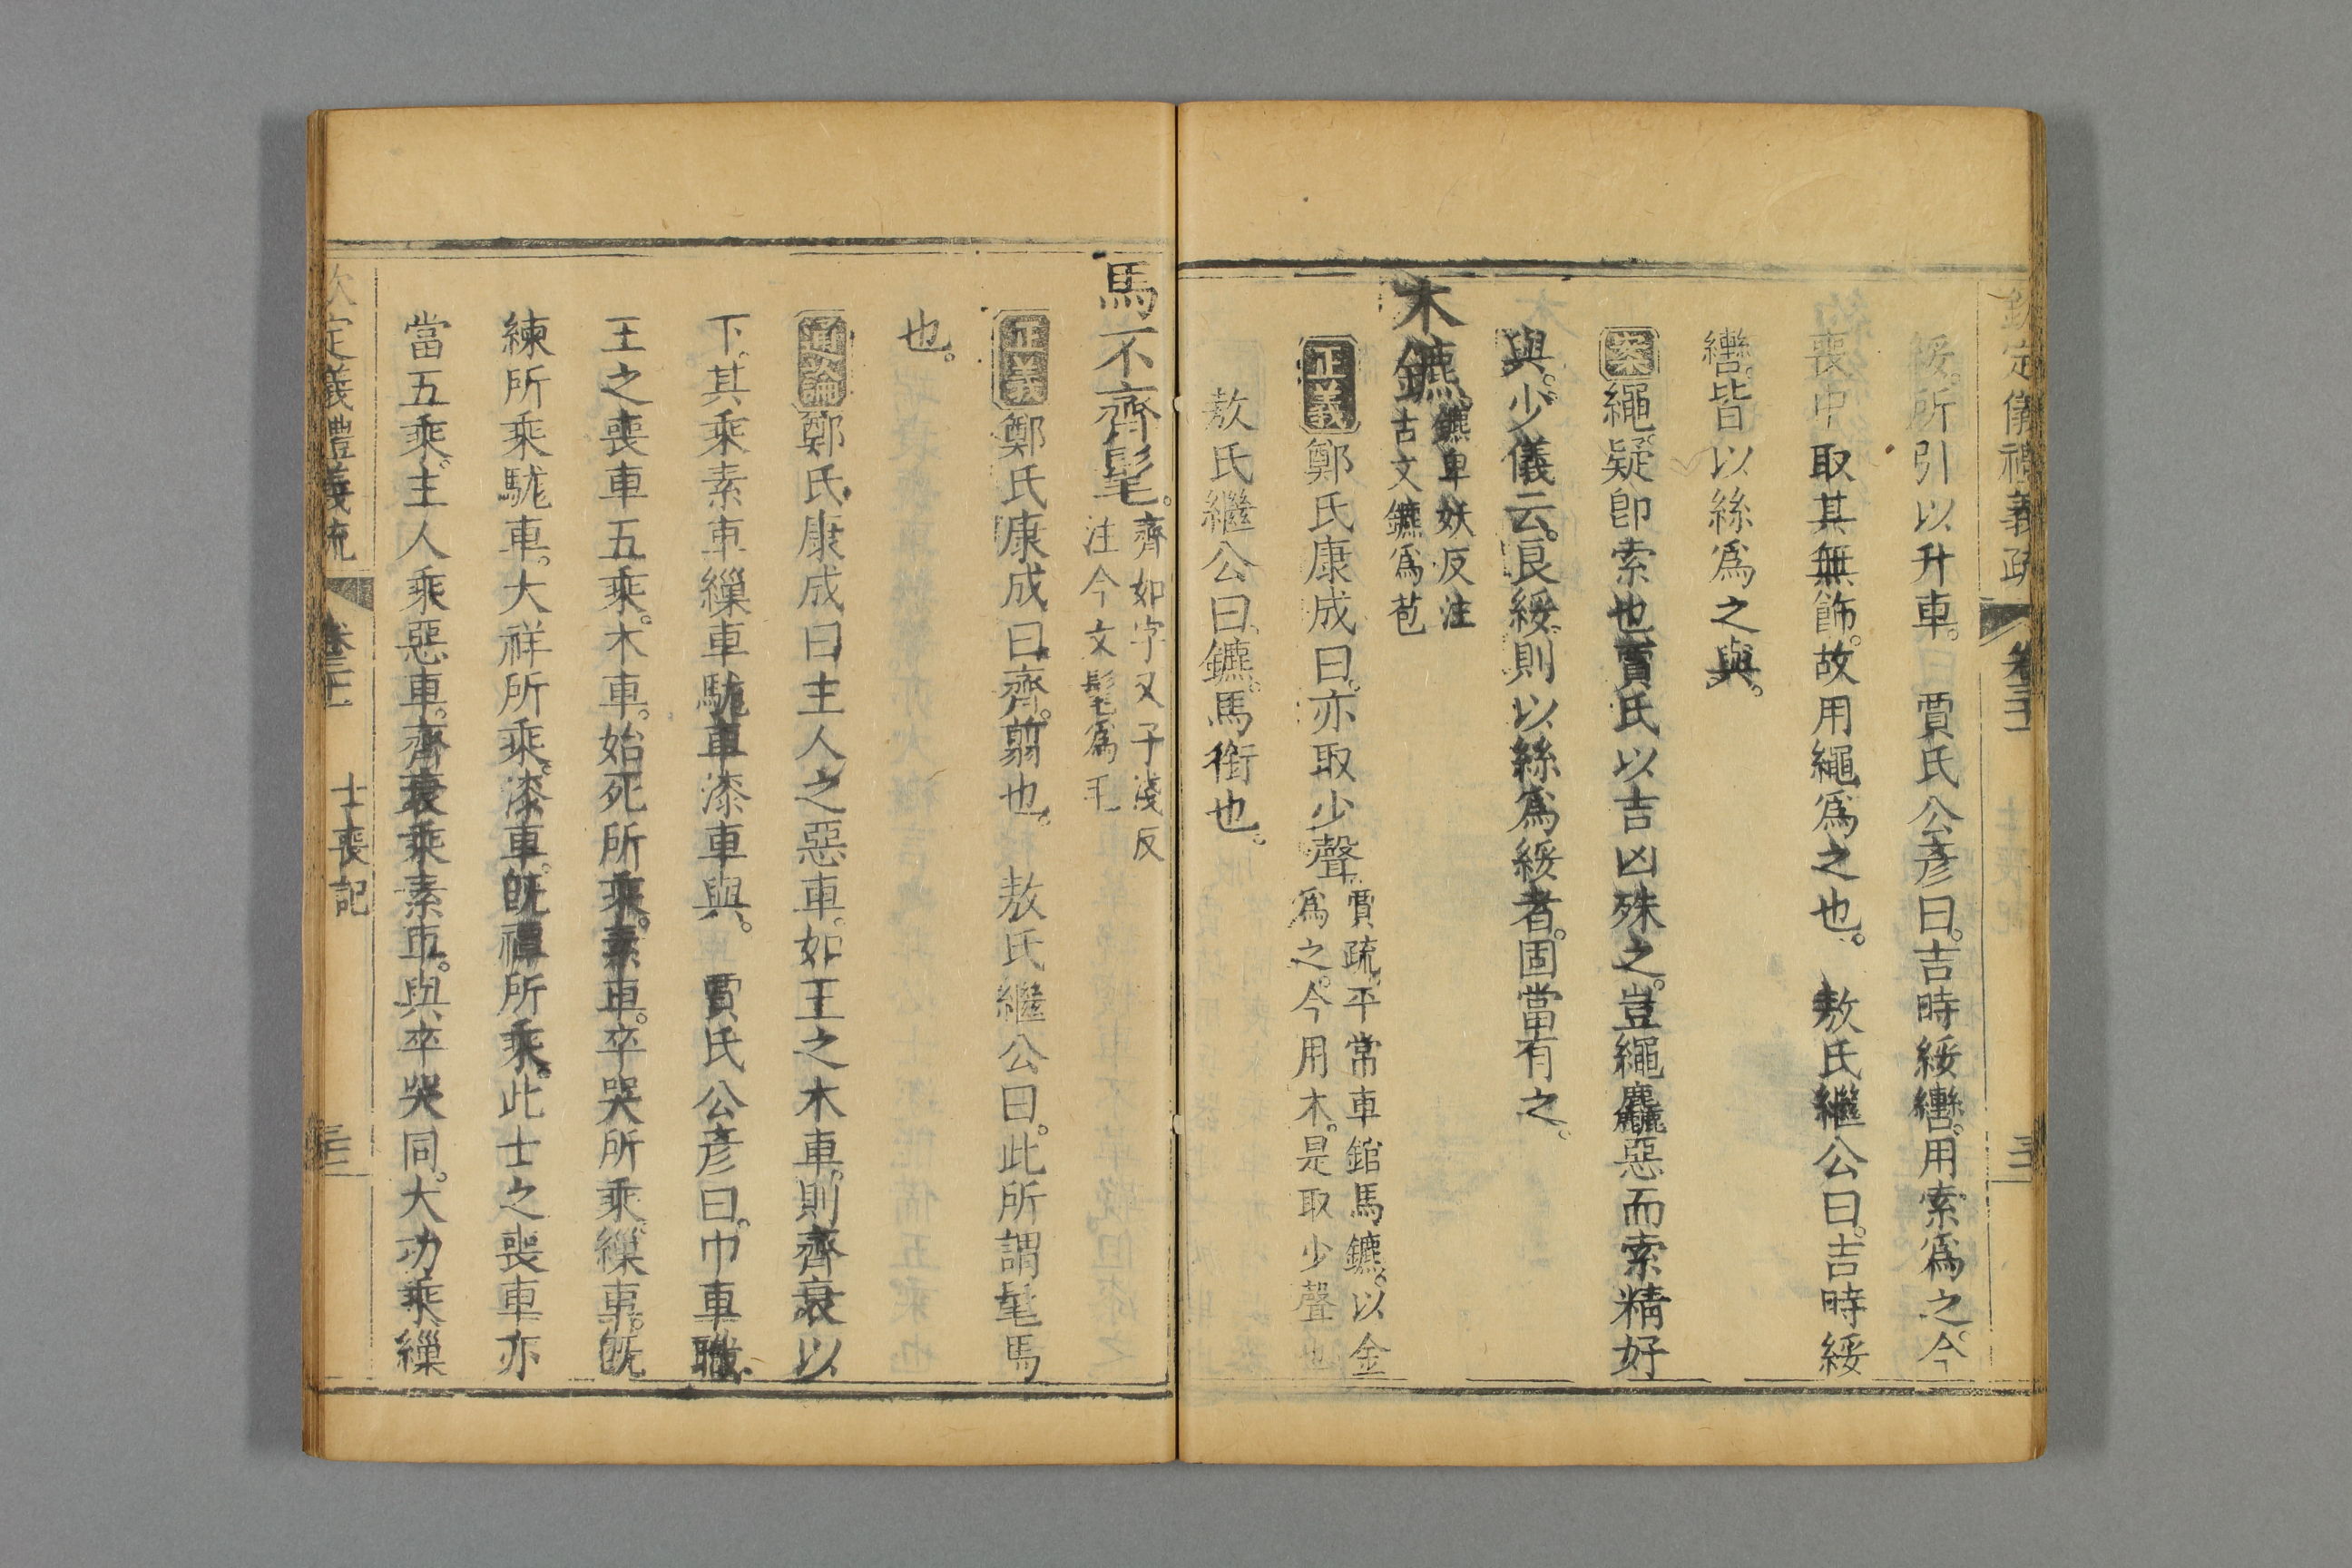 欽定儀禮義疏 卷三十一 三十二
綏所引以升車。 賈氏公彥曰。吉時綏轡。用索爲之。今
喪中取其無飾。故用繩爲之也。 敖氏繼公曰。吉時綏
轡。皆以絲爲之與。
案繩疑卽索也。賈氏以吉凶殊之。豈繩麤惡而索精好
與。少儀云。良綏。則以絲爲綏者。固當有之。
木鑣。鑣卑妖反注
古文鑣爲苞
正義鄭氏康成曰。亦取少聲。賈疏。平常車錧馬鑣。以金
爲之。今用木。是取少聲也
敖氏繼公曰。鑣。馬銜也。
馬不齊髦。齊如字又子淺反
注今文髦爲毛
正義鄭氏康成曰。齊。翦也。 敖氏繼公曰。此所謂髦馬
也。
通論鄭氏康成曰主人之惡車。如王之木車。則齊衰以
下。其乘素車繅車駹車漆車與。 賈氏公彥曰。巾車職
王之喪車五乘。木車。始死所乘。素車。卒哭所乘。繅車。旣
練所乘。駹車。大祥所乘。漆車。旣禫所乘。此士之喪車亦
當五乘。主人乘惡車。齊衰乘素車。與卒哭同。大功乘繅
欽定儀禮義疏 卷三十一 士喪記